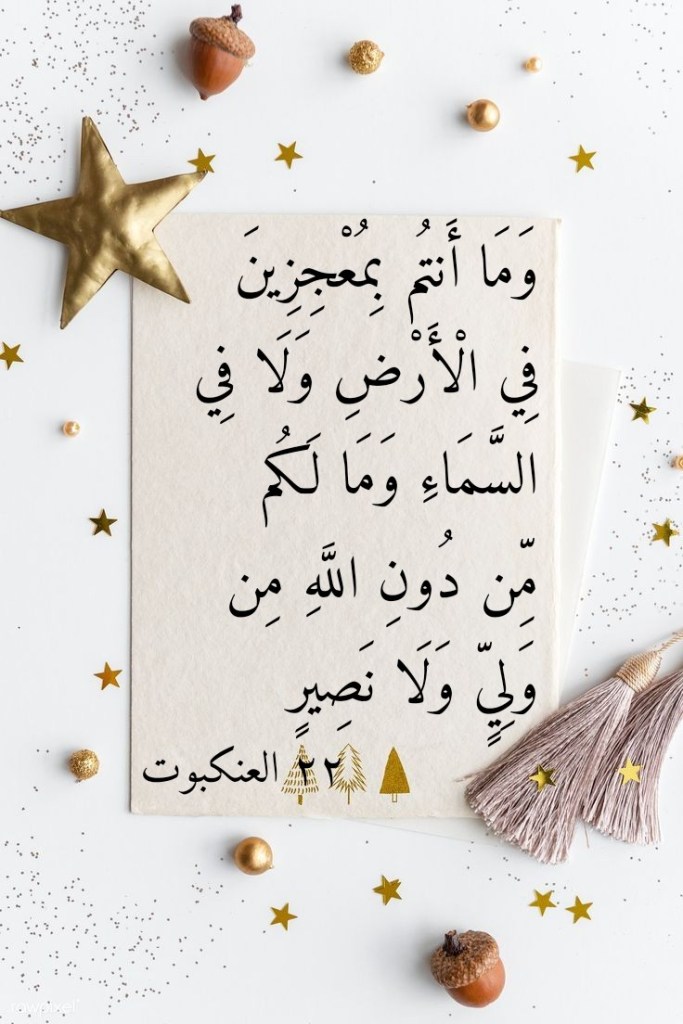 وَمَا أَنتُم بِمُعْجِزِينَ
فِي الْأَرْضِ وَلَا فِي
السَّمَاءِ وَمَا لَكُم
مِّن دُونِ اللَّهِ مِن
وَلِيٍّ وَلَا نَصِيرٍ
٢٢ العنكبوت
rawpixel